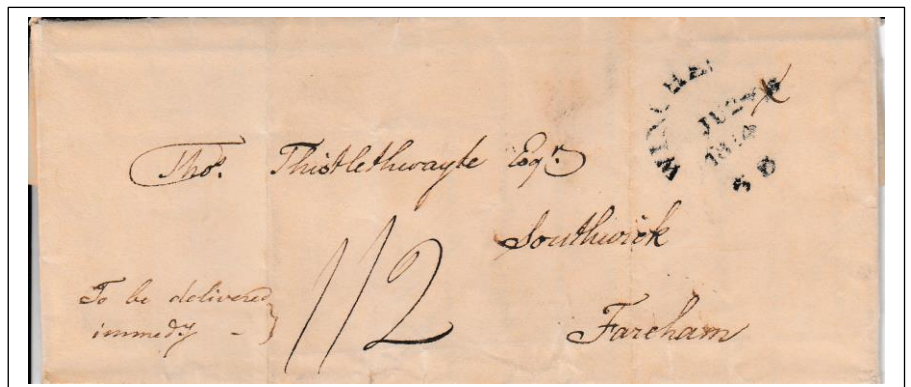 Thos. Thistlethwayte Esqr.
Southwick
Fareham
To be delivered
immedy -